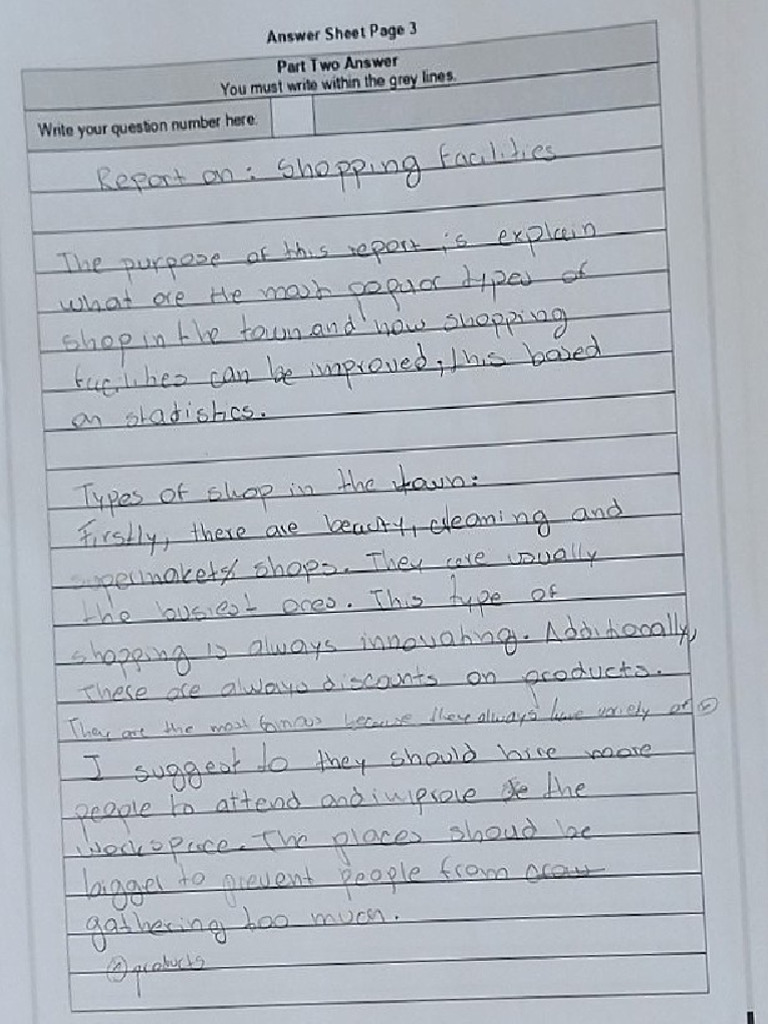 Answer Sheet Page 3
Part Two Answer
You must write within the grey lines.
Write your question number here.
Report on: Shopping Facilities
The purpose of this report is explain
what are the most popular types of
shop in the town and how shopping
facilities can be improved, this based
on stadistics.
Types of shop in the town:
Firstly, there are beauty, cleaning and
supermakets shops. They are usually
the busiest ones. This type of
shopping is always innovating. Additionally,
These are always discounts on products.
They are the most famous because they always have variety of ①
I suggest to they should hire more
people to attend and improve the
workspace. The places should be
bigger to prevent people from
gathering too much.
① products